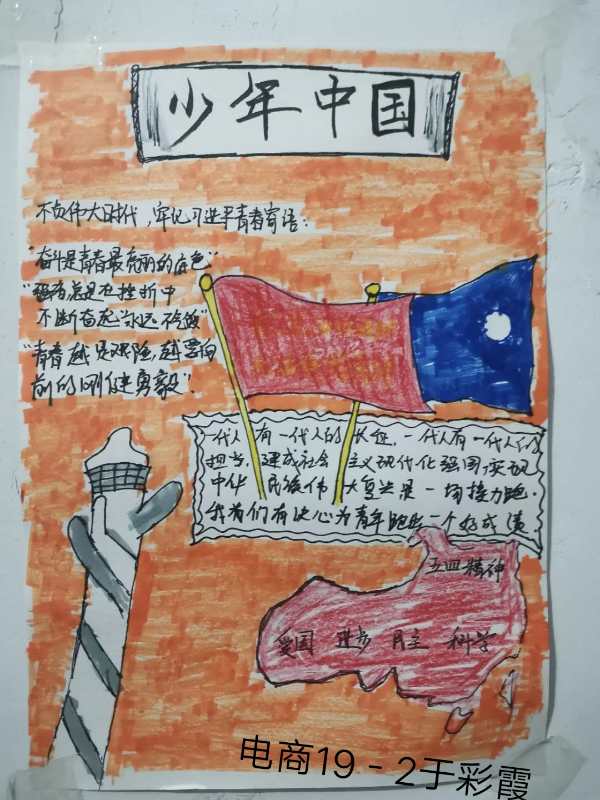 少年中国
不负伟大时代,牢记习近平青春寄语:
"奋斗是青春最亮丽的底色"
"强者总是在挫折中
不断奋起,永远不气馁"
"青春越是艰险,越要向
前的刚健勇毅".
一代人有一代人的长征,一代人有一代人的
担当,建成社会主义现代化强国,实现
中华民族伟大复兴是一场接力跑.
我们有决心为青年跑出一个好成绩
五四精神
爱国 进步 民主 科学
电商19-2于彩霞